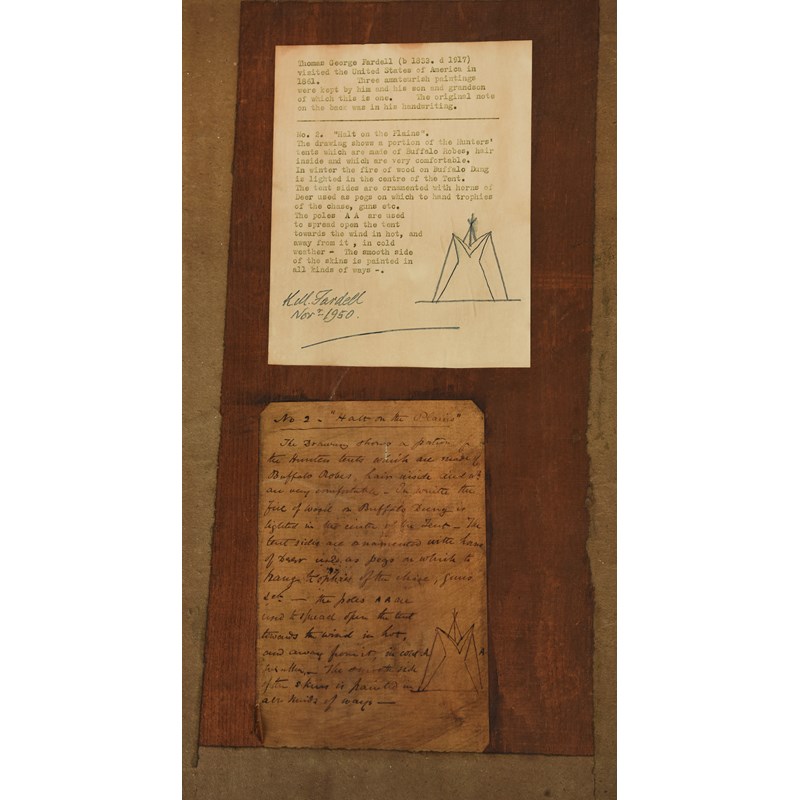 Thomas George Fardell (b 1833. d 1917)
visited the United States of America in
1861. Three amateurish paintings
were kept by him and his son and grandson
of which this is one. The original note
on the back was in his handwriting.
No. 2. "Halt on the Plains".
The drawing shows a portion of the Hunters'
tents which are made of Buffalo Robes, hair
inside and which are very comfortable.
In winter the fire of wood on Buffalo Dung
is lighted in the centre of the Tent.
The tent sides are ornamented with horns of
Deer used as pegs on which to hand trophies
of the chase, guns etc.
The poles A A are used
to spread open the tent
towards the wind in hot, and
away from it , in cold
weather - The smooth side
of the skins is painted in
all kinds of ways -.
H.M. Fardell
Novr 1950.
No 2 - "Halt on the Plains"
The Drawing shows a portion
the Hunters tents which are made of
Buffalo Robes, hair inside and
are very comfortable - In winter the
fire of wood or Buffalo Dung is
lighted in the centre of the Tent - The
tent sides are ornamented with
of Deer used as pegs on which to
hang trophies of the chase, guns
&c - the poles A A are
used to spread open the tent
towards the wind in hot,
and away from it, in cold
weather - The smooth side
of the skins is painted in
all kinds of ways -